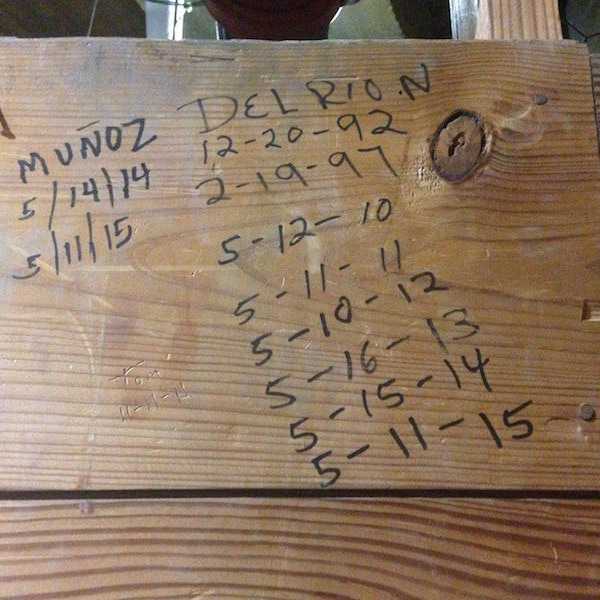 MUÑOZ
5/14/14
5/11/15
DEL RIO.N
12-20-92
2-19-97
5-12-10
5-11-11
5-10-12
5-16-13
5-15-14
5-11-15
Tom